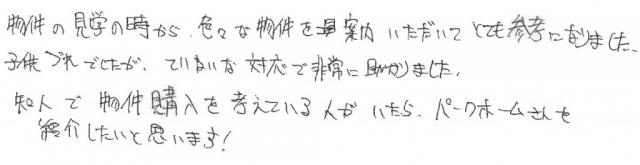 物件の見学の時から、色々な物件を案内いただいてとても参考になりました。
子供づれでしたが、ていねいな対応で非常に助かりました。
知人で物件購入を考えている人がいたら、パークホームさんを
紹介したいと思います!